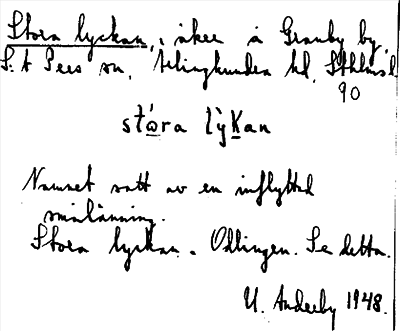 Stora lyckan, åker å Granby by,
S:t Pers sn, Seminghundra hd, Sthlms l.
90
stóra lỳkan
Namnet satt av en inflyttad
smålänning.
Stora lyckan. Odlingen. Se detta.
U. Anderby 1948.